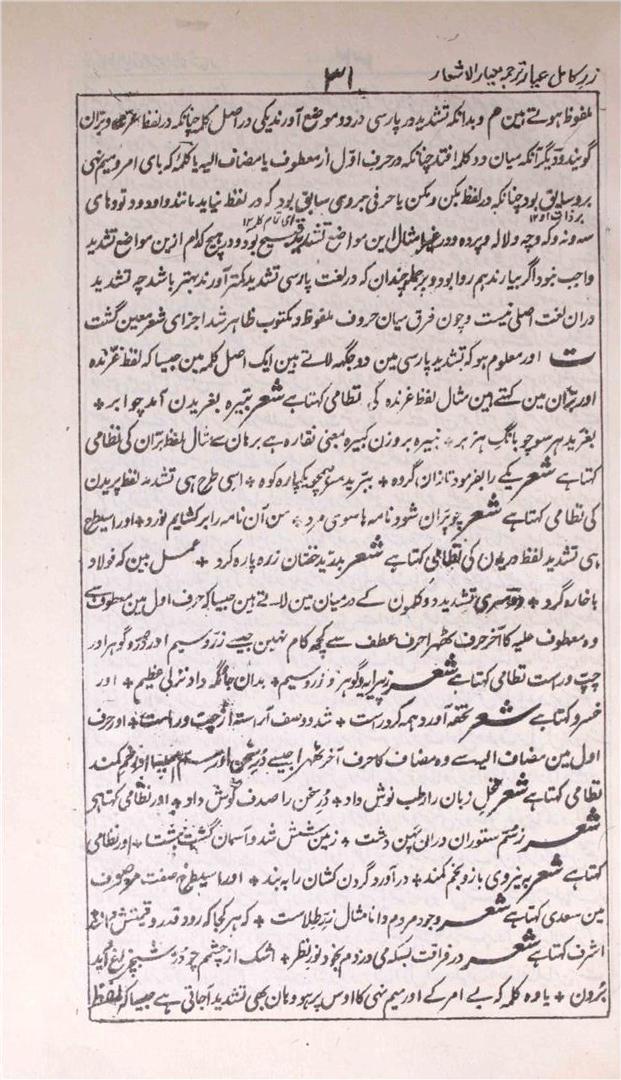 زر کامل عیار ترجمہ معیار الاشعار ۳۱
ملفوظ ہوتے ہین ھم و بدانکہ تشدید در پارسی در دو موضع آورند یکی در اصل کلمہ چنانکہ در لفظ غرندہ و بران
گویند و دیگر آنکہ میان دو کلمہ افتد چنانکہ در حرف اوّل از معطوف یا مضاف الیہ یا کلمہ کہ بای امر و میم نہی
برو سابق بود چنانکہ در لفظ بکن و مکن یا حرفی جروی سابق بود کہ در لفظ نیاید مانند واو دو و تو و ہای
سہ و نہ و کہ و چہ و لالہ و پردہ و در غیر امثال این مواضع تشدید قبیح بود و در ہیچ کلام ازین مواضع تشدید
واجب نبود اگر بیارند ہم روا بود و بر جملہ چندان کہ در لغت پارسی تشدید کمتر آورند بہتر باشد چہ تشدید
دران لغت اصلی نیست و چون فرق میان حروف ملفوظ و مکتوب ظاہر شد اجزای شعر معین گشت
ت اور معلوم ہو کہ تشدید پارسی مین دو جگہہ لاتے ہین ایک اصل کلمہ مین جیسا کہ لفظ غرّندہ
اور برّان مین کہتے ہین مثال لفظ غرندہ کی نظامی کہتا ہے شعر تبیرہ بغریدن آمد چو ابر +
بغرید ہر سو چو بانگ ہزبر + تبیرہ بروزن کبیرہ بمعنی نقارہ ہے برہان سے مثال لفظ برّان کی نظامی
کہتا ہے شعر یکے را بفرمود تا زان گروہ + ببرّید سر ہمچو یکپارہ کوہ + اسی طرح ہی تشدید لفظ پریدن
کی نظامی کہتا ہے شعر چو پرّان شود نامہ ہا سوی مرد + من آن نامہ را برکشایم نورد + اور اسیطرح
ہی تشدید لفظ دریدن کی نظامی کہتا ہے شعر بدرّید خفتان زرہ پارہ کرد + عمل بین کہ فولاد
با خارہ کرد + دوسری تشدید دو کلمون کے درمیان مین لاتے ہین جیسا کہ حرف اول مین معطوف سے
وہ معطوف علیہ کا آخر حرف ٹھہرا حرف عطف سے کچھ کام نہین جیسے زرّ و سیم اور درّ و گوہر اور
چپّ و راست نظامی کہتا ہے شعر ز پیرایہ و گوہر و زرّ و سیم + بدان جایگہ داد نزلی عظیم + اور
خسرو کہتا ہے شعر تحفہ آورد و ہمہ کرد راست + شد دو صف آراستہ از چپّ و راست + اور حرف
اول مین مضاف الیہ سے وہ مضاف کا حرف آخر ٹھہرا جیسے درّ سخن اور سمّ اسپ اور خمّ کمند
نظامی کہتا ہے شعر نخل زبان را رطب نوش داد + درّ سخن را صدف گوش داد + اور نظامی کہتا ہی
شعر ز سمّ ستوران دران پہن دشت + زمین شش شد و آسمان گشت ہشت + اور نظامی
کہتا ہے شعر بہ نیروی بازو بخمّ کمند + درآورد گردن کشان را بہ بند + اور اسیطرح صفت موصوف
مین سعدی کہتا ہے شعر وجود مردم دانا مثال زرّ طلاست + کہ ہر کجا کہ رود قدر و قیمتش دانند
اشرف کہتا ہے شعر در فراقت بسکہ می دزدم بخود نور نظر + اشک از چشم چو درّ شبچراغ آید
برون + یا وہ کلمہ کہ بے امر کے اور میم نہی کا اوس پر ہو وہان بھی تشدید آجاتی ہے جیسا کہ لفظ